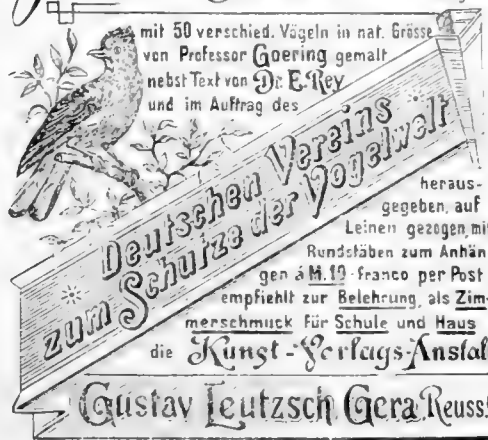 mit 50 verschied. Vögeln in nat. Grösse
von Professor Goering gemalt
nebst Text von Dr. E. Rey
und im Auftrag des
Deutschen Vereins
zum Schutze der Vogelwelt
heraus-
gegeben, auf
Leinen gezogen, mi
Rundstäben zum Anhän
gen á M. 10 - franco per Post
empfiehlt zur Belehrung, als Zim-
merschmuck für Schule und Haus
die Kunst-Verlags-Anstal
Gustav Leutzsch, Gera, Reuss.